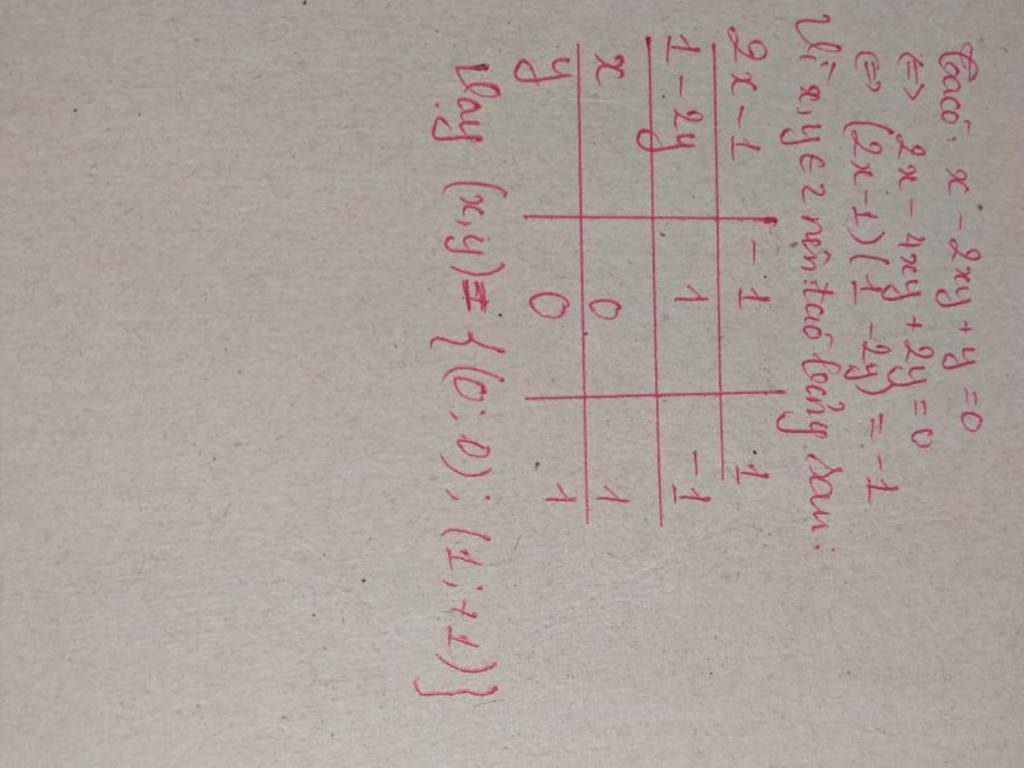 Ta có: x - 2xy + y = 0
<=> 2x - 4xy + 2y = 0
<=> (2x-1)(1-2y) = -1
Vì x,y ∈ Z nên ta có bảng sau:
2x-1 -1 1
1-2y 1 -1
x 0 1
y 0 1
Vậy (x,y) = {(0;0); (1;+1)}